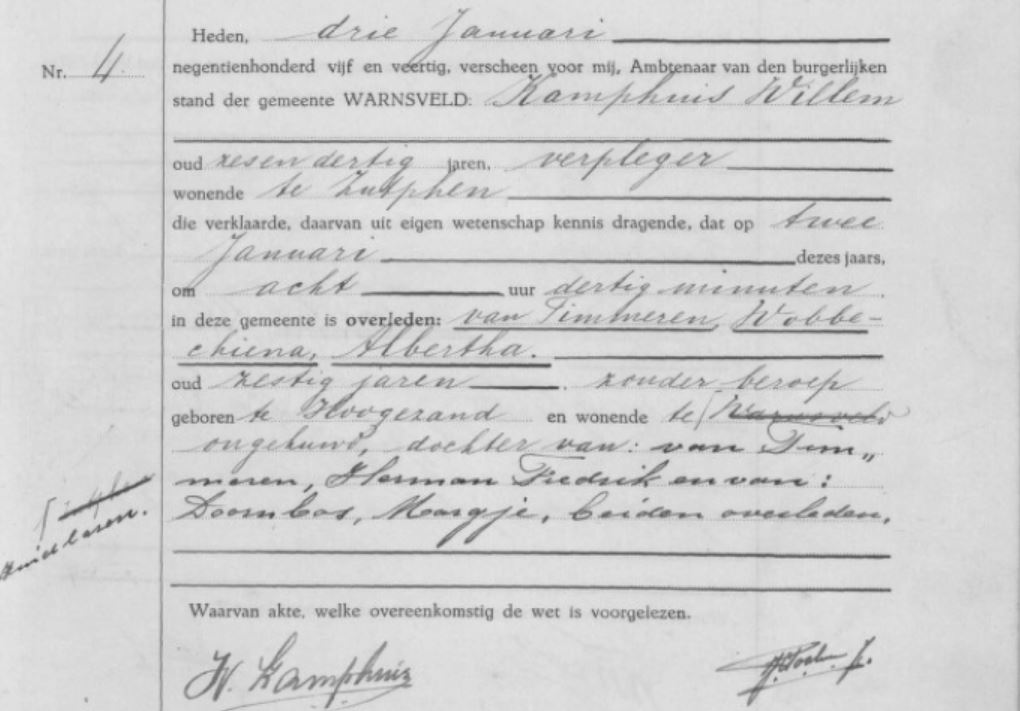 Heden, drie Januari
Nr. 4.
negentienhonderd vijf en veertig, verscheen voor mij, Ambtenaar van den burgerlijken
stand der gemeente WARNSVELD: Kamphuis Willem
oud zesendertig jaren, verpleger
wonende te Zutphen
die verklaarde, daarvan uit eigen wetenschap kennis dragende, dat op twee
Januari dezes jaars,
om acht uur dertig minuten,
in deze gemeente is overleden: van Timmeren, Wobbe-
chiena, Albertha.
oud zestig jaren, zonder beroep
geboren te Hoogezand en wonende te Warnsveld
ongehuwd, dochter van: van Tim„
meren, Herman Fredrik en van:
Doornbos, Margje, beiden overleden.
Waarvan akte, welke overeenkomstig de wet is voorgelezen.
W. Kamphuis